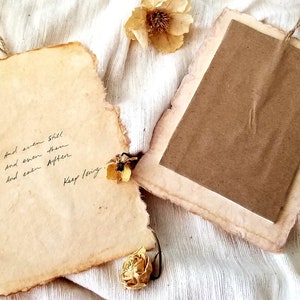 And even still
and even then
and even After
Keep Going